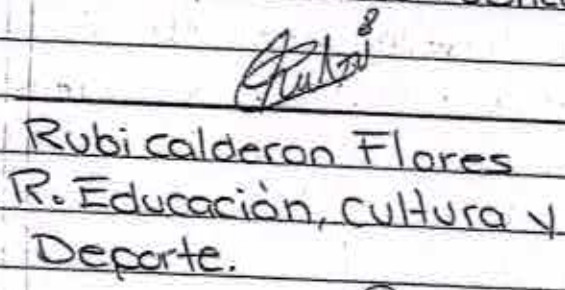 Rubi calderon Flores
R. Educación, cultura y
Deporte.